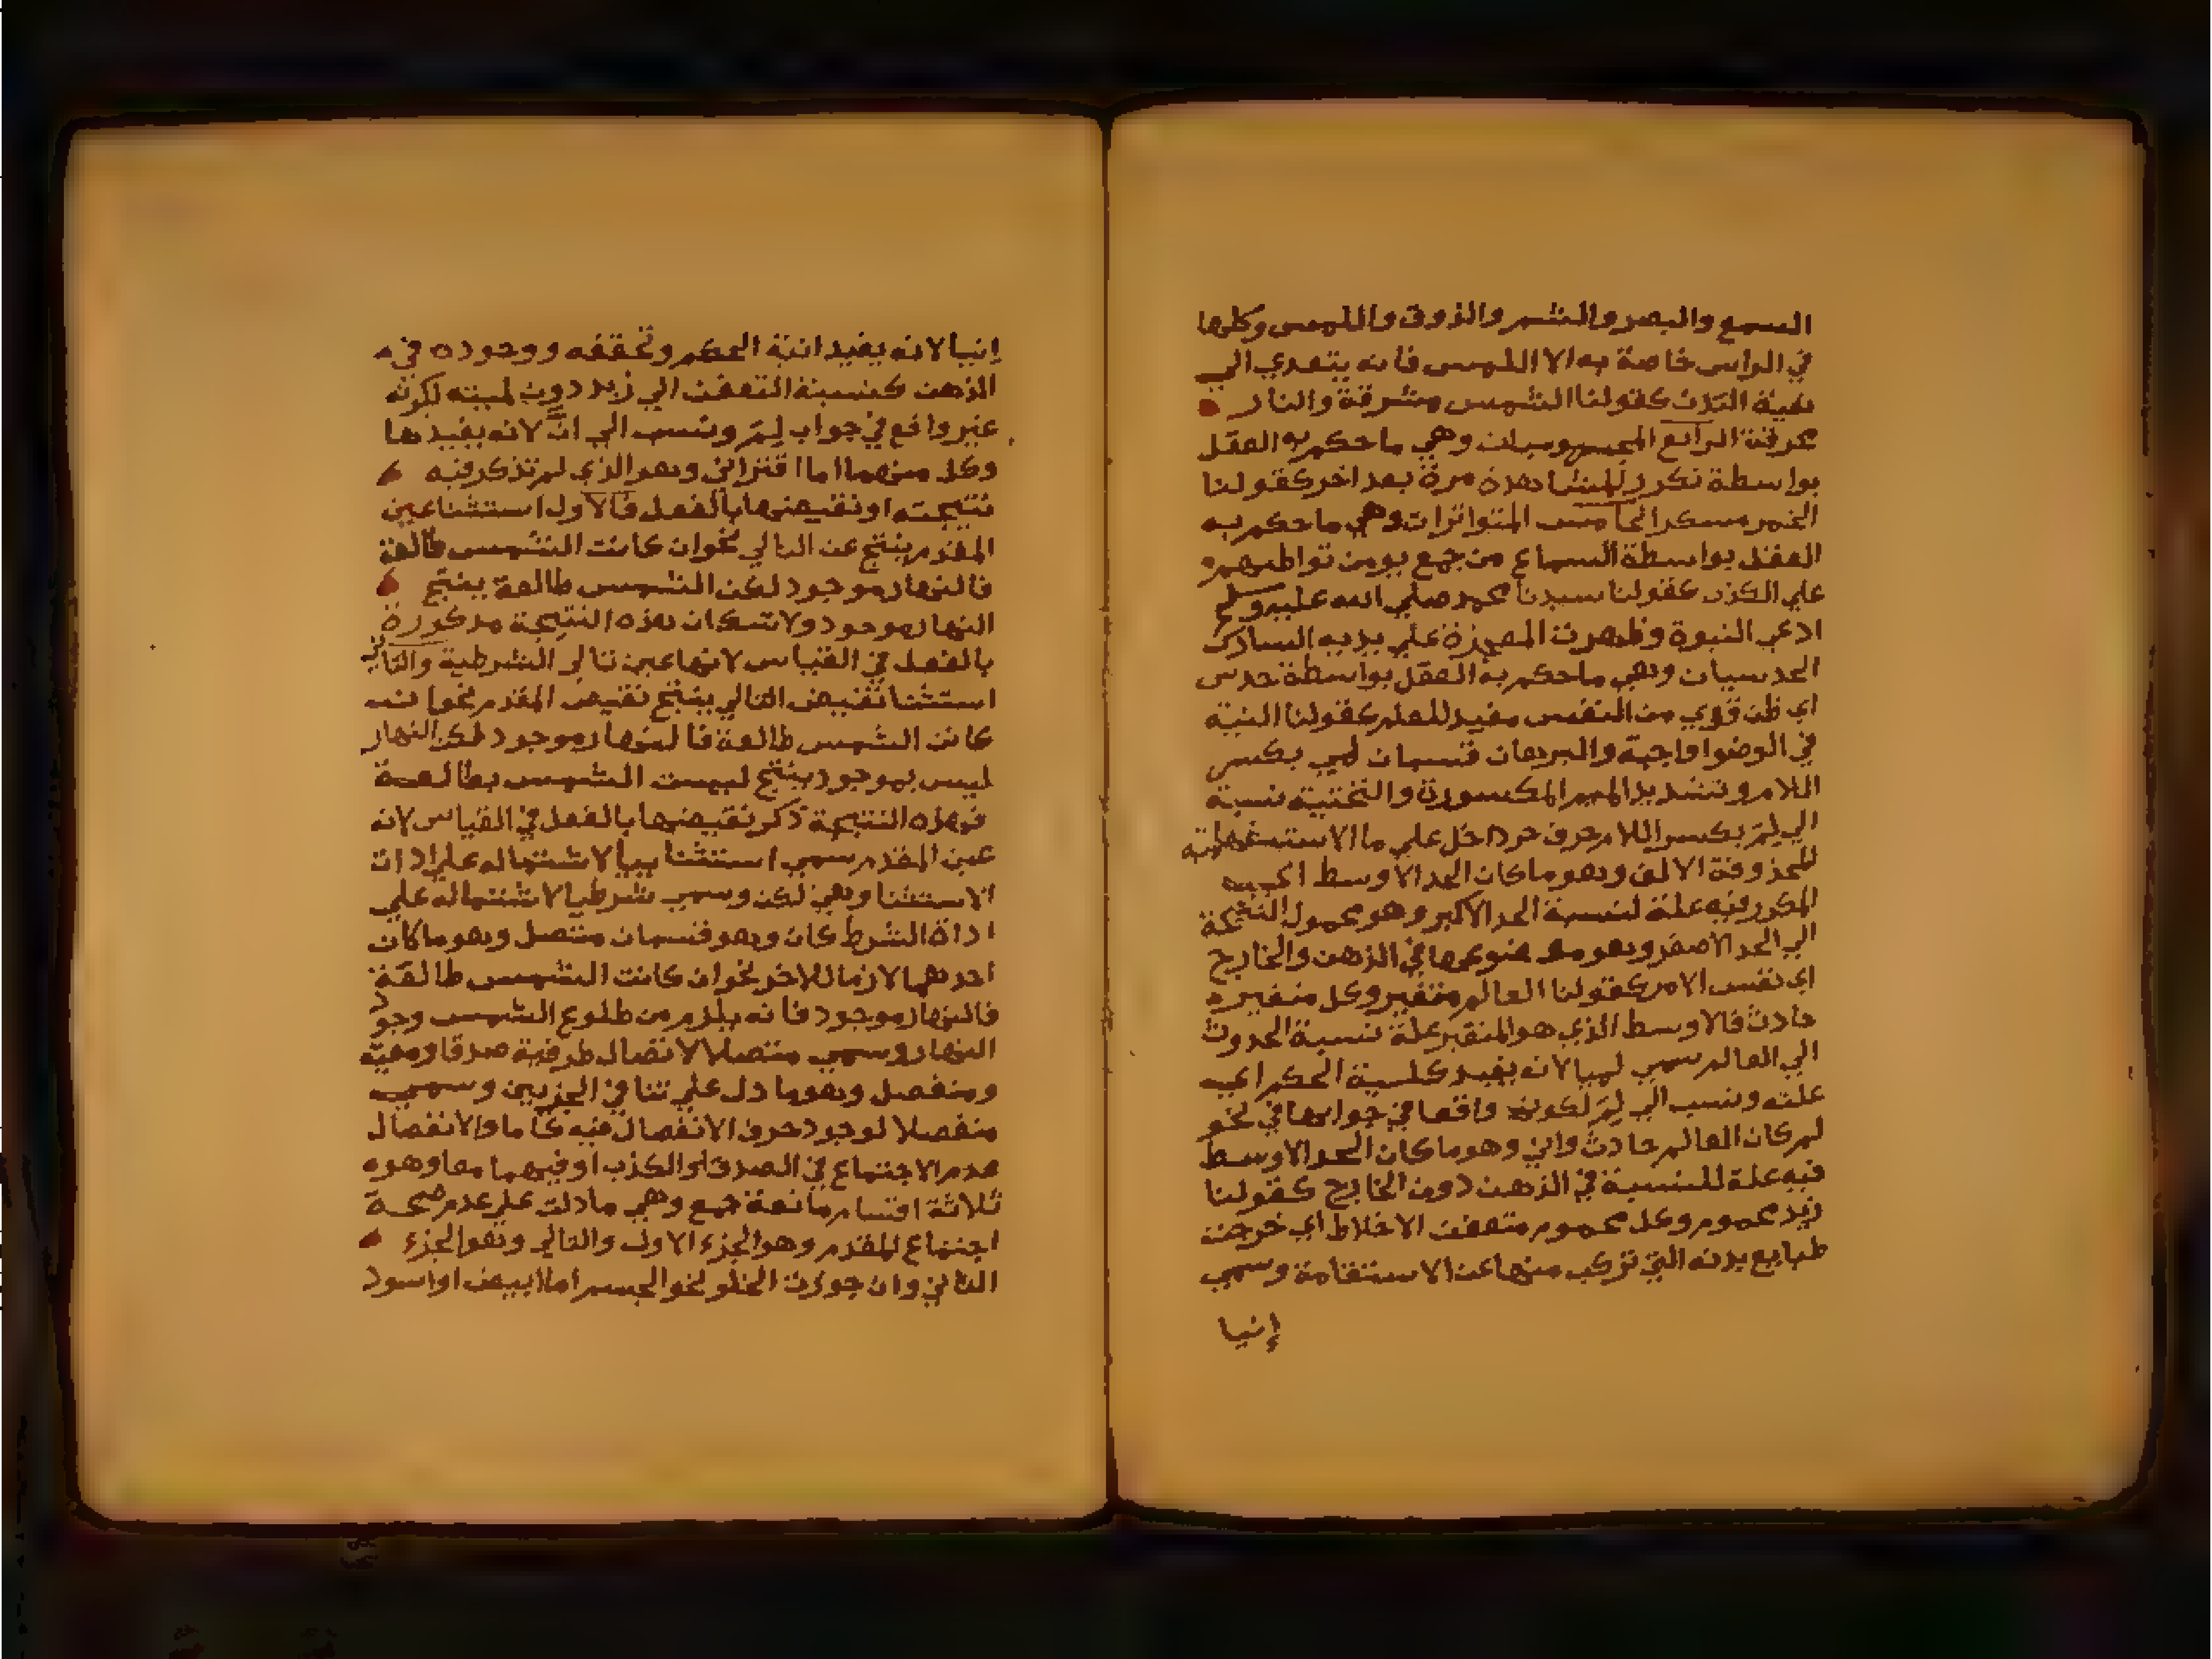 السمع والبصر والشم والذوق واللمس وكلها
في الراس خاصة به الا اللمس فانه يتعدي الي
بقية البدن كقولنا الشمس مشرقة والنار
محرقة الرابع المجربات وهي ما حكم به العقل
بواسطة تكرر المشاهدة مرة بعد اخر كقولنا
الخمر مسكر الخامس المتواترات وهي ما حكم به
العقل بواسطة السماع من جمع يومن تواطيهم
علي الكذب كقولنا سيدنا محمد صلي الله عليه وسلم
ادعي النبوة وظهرت المعجزة علي يديه السادس
الحدسيات وهي ما حكم به العقل بواسطة حدس
اي ظن قوي من النفس مفيد للعلم كقولنا النية
في الوضوا واجبة والبرهان قسمان لمي بكسر
اللام وتشديد الميم المكسورة والتحتية نسبة
الي لِمَ بكسر اللام حرف جر داخل علي ما الاستفهامية
المحذوفة الالف وهو ما كان الحد الاوسط اي
المكرر فيه علة لنسبة الحد الاكبر وهو محمول النتيجة
الي الحد الاصغر وهو موضوعها في الذهن والخارج
اي نفس الامر كقولنا العالم متغير وكل متغير
حادث فالاوسط الذي هو المتغير علة نسبة الحدوث
الي العالم سمي لميا لانه يفيد كلمية الحكم اي
علته ونسب الي لِمَ لكونه واقعا في جوابها في نحو
لم كان العالم حادث واني وهو ما كان الحد الاوسط
فيه علة للنسبة في الذهن دون الخارج كقولنا
زيد محموم وكل محموم متعفن الاخلاط اي خرجت
طبايع بدنه التي تركب منها عن الاستقامة وسمي
إنيا
إنيا لانه يفيد انية الحكم وتحققه ووجوده في
الذهن كنسبة التعفن الي زيد دون لميته لكونه
غير واقع في جواب لِمَ ونسب الي انَّ لانه يفيدها
وكل منهما اما اقتراني وهو الذي لم تذكر فيه
نتيجته او نقيضها بالفعل فالاول استثنا عين
المقدم ينتج عن التالي نحو ان كانت الشمس طالعة
فالنهار موجود لكن الشمس طالعة ينتج
النهار موجود ولا شك ان هذه النتيجة مذكورة
بالفعل في القياس لانها عين تالي الشرطية والثاني
استثنا نقيض التالي ينتج نقيض المقدم نحو ان
كانت الشمس طالعة فالنهار موجود لكن النهار
ليس بموجود ينتج ليست الشمس بطالعة
فهذه النتيجة ذكر نقيضها بالفعل في القياس لانه
عين المقدم سمي استثنا ييا لاشتماله علي ادات
الاستثنا وهي لكن وسمي شرطيا لاشتماله علي
اداة الشرط كان وهو قسمان متصل وهو ما كان
احدهما لازما للاخر نحو ان كانت الشمس طالعة
فالنهار موجود فانه يلزم من طلوع الشمس وجود
النهار وسمي متصلا لاتصال طرفيه صدقا ومعية
ومنفصل وهو ما دل علي تنافي الجزيين وسمي
منفصلا لوجود حرف الانفصال فيه كاما والانفصال
عدم الاجتماع في الصدق او الكذب او فيهما معا وهو
ثلاثة اقسام مانعة جمع وهي ما دلت علي عدم صحة
اجتماع المقدم وهو الجزء الاول والتالي وهو الجزء
الثاني وان جوزت الخلو نحو الجسم اما ابيض او اسود